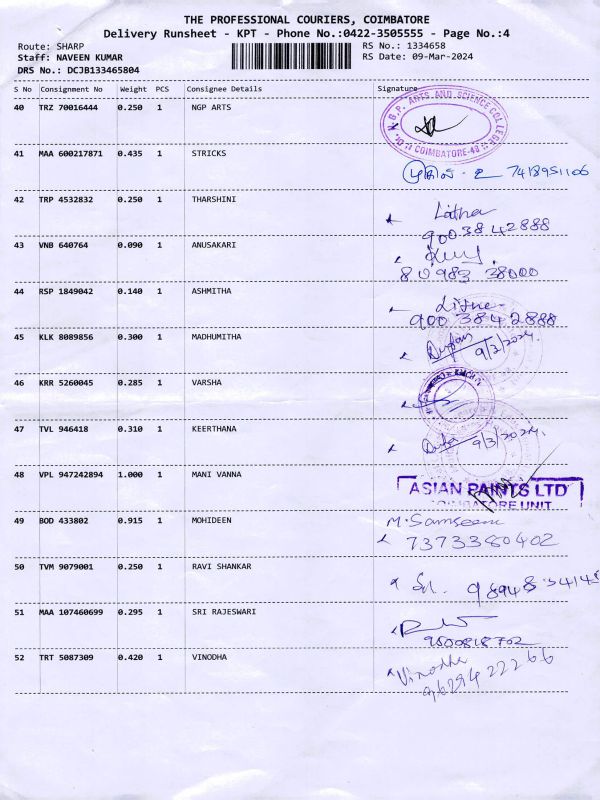 THE PROFESSIONAL COURIERS, COIMBATORE
Delivery Runsheet - KPT - Phone No.:0422-3505555 - Page No.:4
Route: SHARP RS No.: 1334658
Staff: NAVEEN KUMAR RS Date: 09-Mar-2024
DRS No.: DCJB133465804
S No Consignment No Weight PCS Consignee Details Signature
40 TRZ 70016444 0.250 1 NGP ARTS
ARTS AND SCIENCE COLLEGE
COIMBATORE-48
41 MAA 600217871 0.435 1 STRICKS
7418951106
42 TRP 4532832 0.250 1 THARSHINI
Latha
9003842888
43 VNB 640764 0.090 1 ANUSAKARI
80983 38000
44 RSP 1849042 0.140 1 ASHMITHA
9003842888
45 KLK 8089856 0.300 1 MADHUMITHA
9/3/2024
46 KRR 5260045 0.285 1 VARSHA
47 TVL 946418 0.310 1 KEERTHANA
9/3/2024
48 VPL 947242894 1.000 1 MANI VANNA
ASIAN PAINTS LTD
COIMBATORE UNIT
49 BOD 433802 0.915 1 MOHIDEEN
7373380402
50 TVM 9079001 0.250 1 RAVI SHANKAR
51 MAA 107460699 0.295 1 SRI RAJESWARI
9500818702
52 TRT 5087309 0.420 1 VINODHA
Vinodha
9629422266